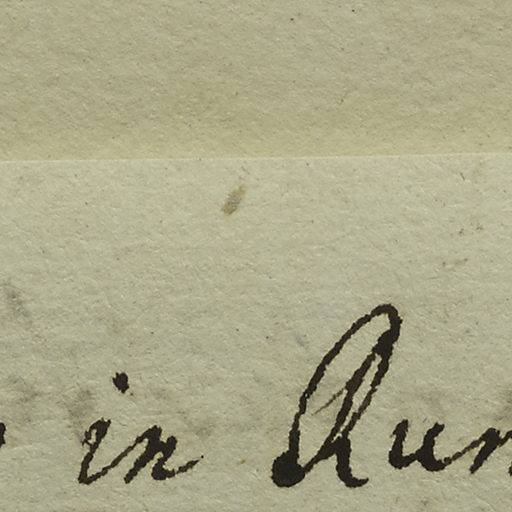 in Run